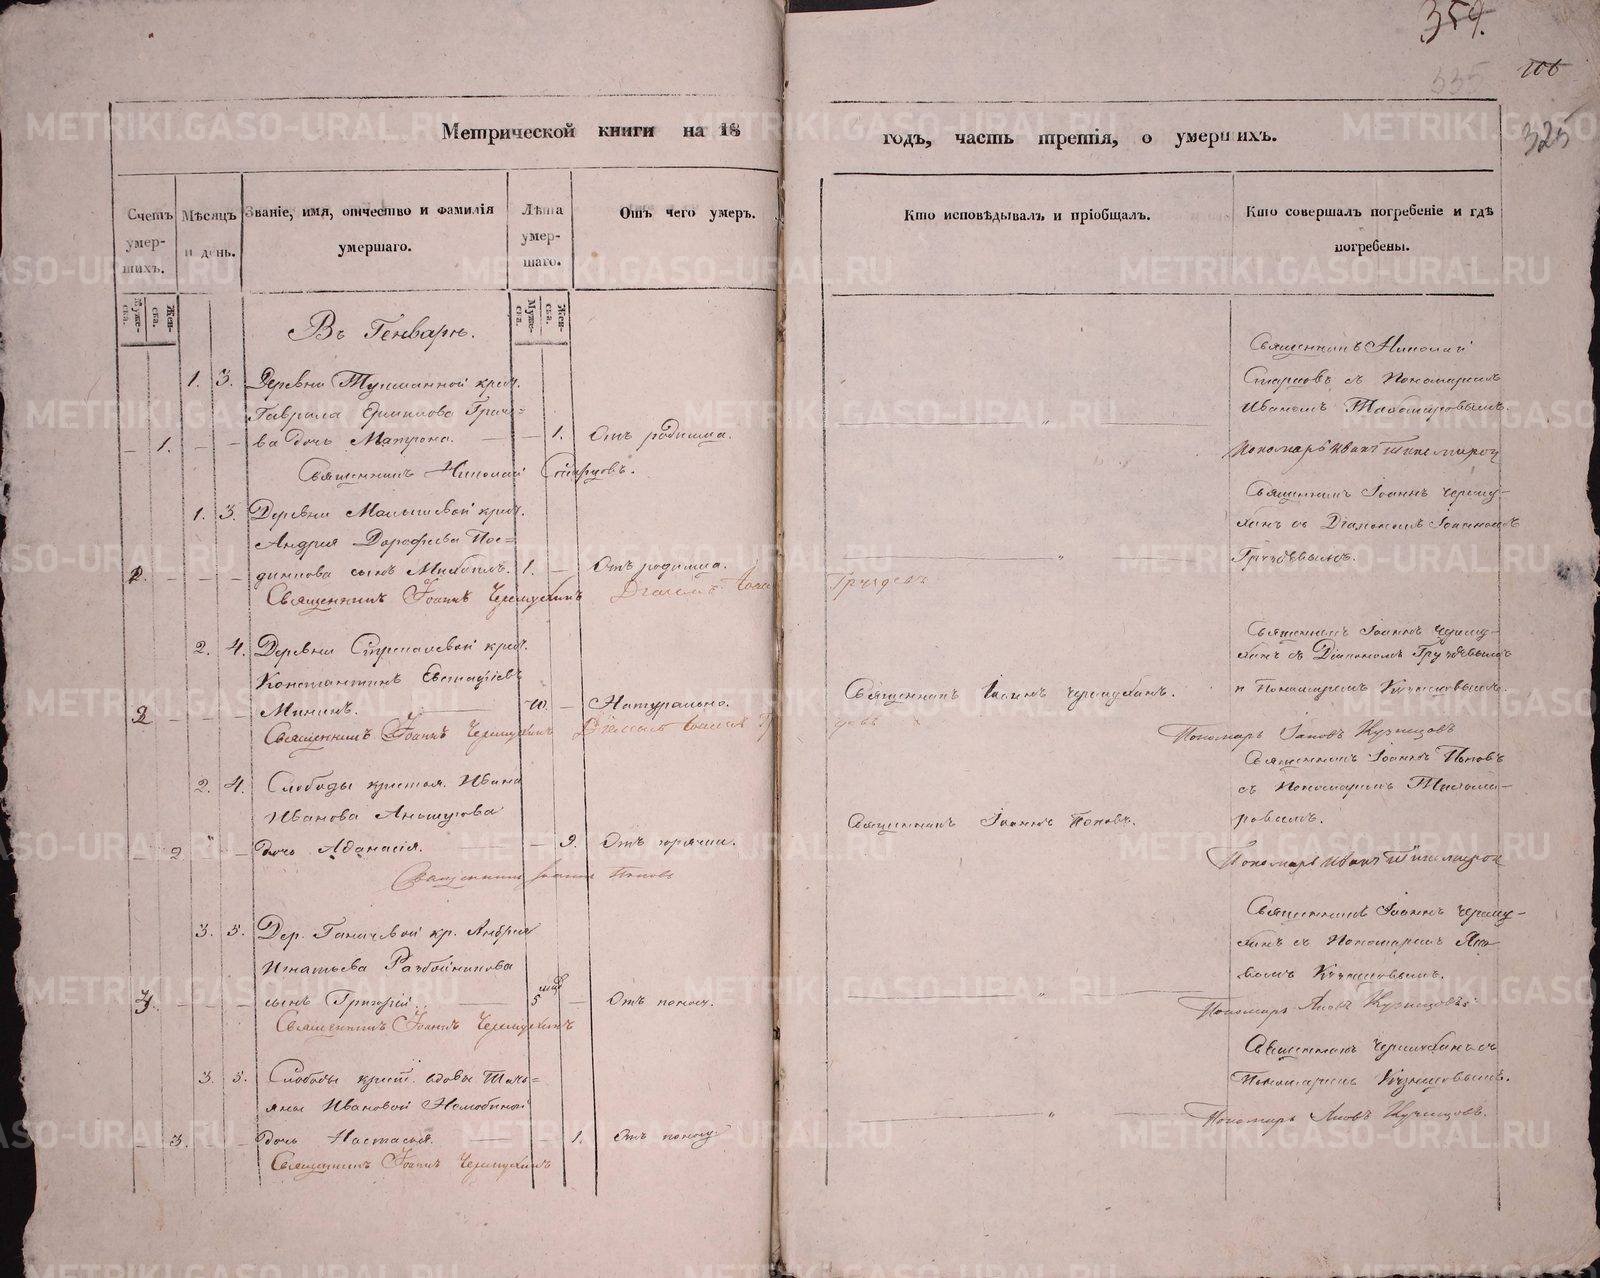 354.
106
335
325
Метрической книги на 18
годъ, часть третія, о умершихъ.
Счетъ умер-шихъ.
Мѣсяцъ и день.
Званіе, имя, отчество и фамилія умершаго.
Лѣта умер-шаго.
Отъ чего умеръ.
Кто исповѣдывалъ и пріобщалъ.
Кто совершалъ погребеніе и гдѣ погребены.
Муже-ска.
Жен-ска.
Муже-ска.
Жен-ска.
Въ Генварѣ.
1. 3. Деревни крест.
Гаврила
ва дочь Матрона. 1. Отъ родимца.
1.
Священникъ Николай Старцовъ.
Священникъ Николай
Старцовъ съ Пономаремъ
Иваномъ
Пономарь Иванъ
1. 3. Деревни Малышевой крест.
Андрея Дорофѣева Пос=
2. сынъ Михаилъ. 1. Отъ родимца.
Священникъ Іоаннъ Черемухинъ Діаконъ Іоаннъ Груздевъ
Священникъ Іоаннъ Черему-
хинъ съ Діакономъ Іоанномъ
Груздевымъ.
2. 4. Деревни крест.
Константинъ Евстафіевъ
2 Мининъ. Натурально.
Священникъ Іоаннъ Черемухинъ Діаконъ Іоаннъ Груздевъ
Священникъ Іоаннъ Черемухинъ.
Священникъ Іоаннъ Черему-
хинъ съ Діакономъ Груздевымъ
и Пономаремъ Кузнецовымъ.
Пономарь Іаковъ Кузнецовъ
2. 4. Слободы крестья. Ивана
Иванова
2 дочь Афанасія. 9. Отъ горячки.
Священникъ Іоаннъ Поповъ
Священникъ Іоаннъ Поповъ.
Священникъ Іоаннъ Поповъ
съ Пономаремъ
ровымъ.
Пономарь Иванъ
3. 5. Дер. Ганичевой кр. Андрея
Игнатьева Разбойникова
3. сынъ Григорій. 5 Отъ поносу.
Священникъ Іоаннъ Черемухинъ
Священникъ Іоаннъ Черему-
хинъ съ Пономаремъ Яко-
вомъ Кузнецовымъ.
Пономарь Яковъ Кузнецовъ.
3. 5. Слободы крест. вдовы Тать=
яны Ивановой
3. дочь Настасья. 1. Отъ поносу.
Священникъ Іоаннъ Черемухинъ
Священникъ Черемухинъ съ
Пономаремъ Кузнецовымъ.
Пономарь Яковъ Кузнецовъ.
METRIKI.GASO-URAL.RU